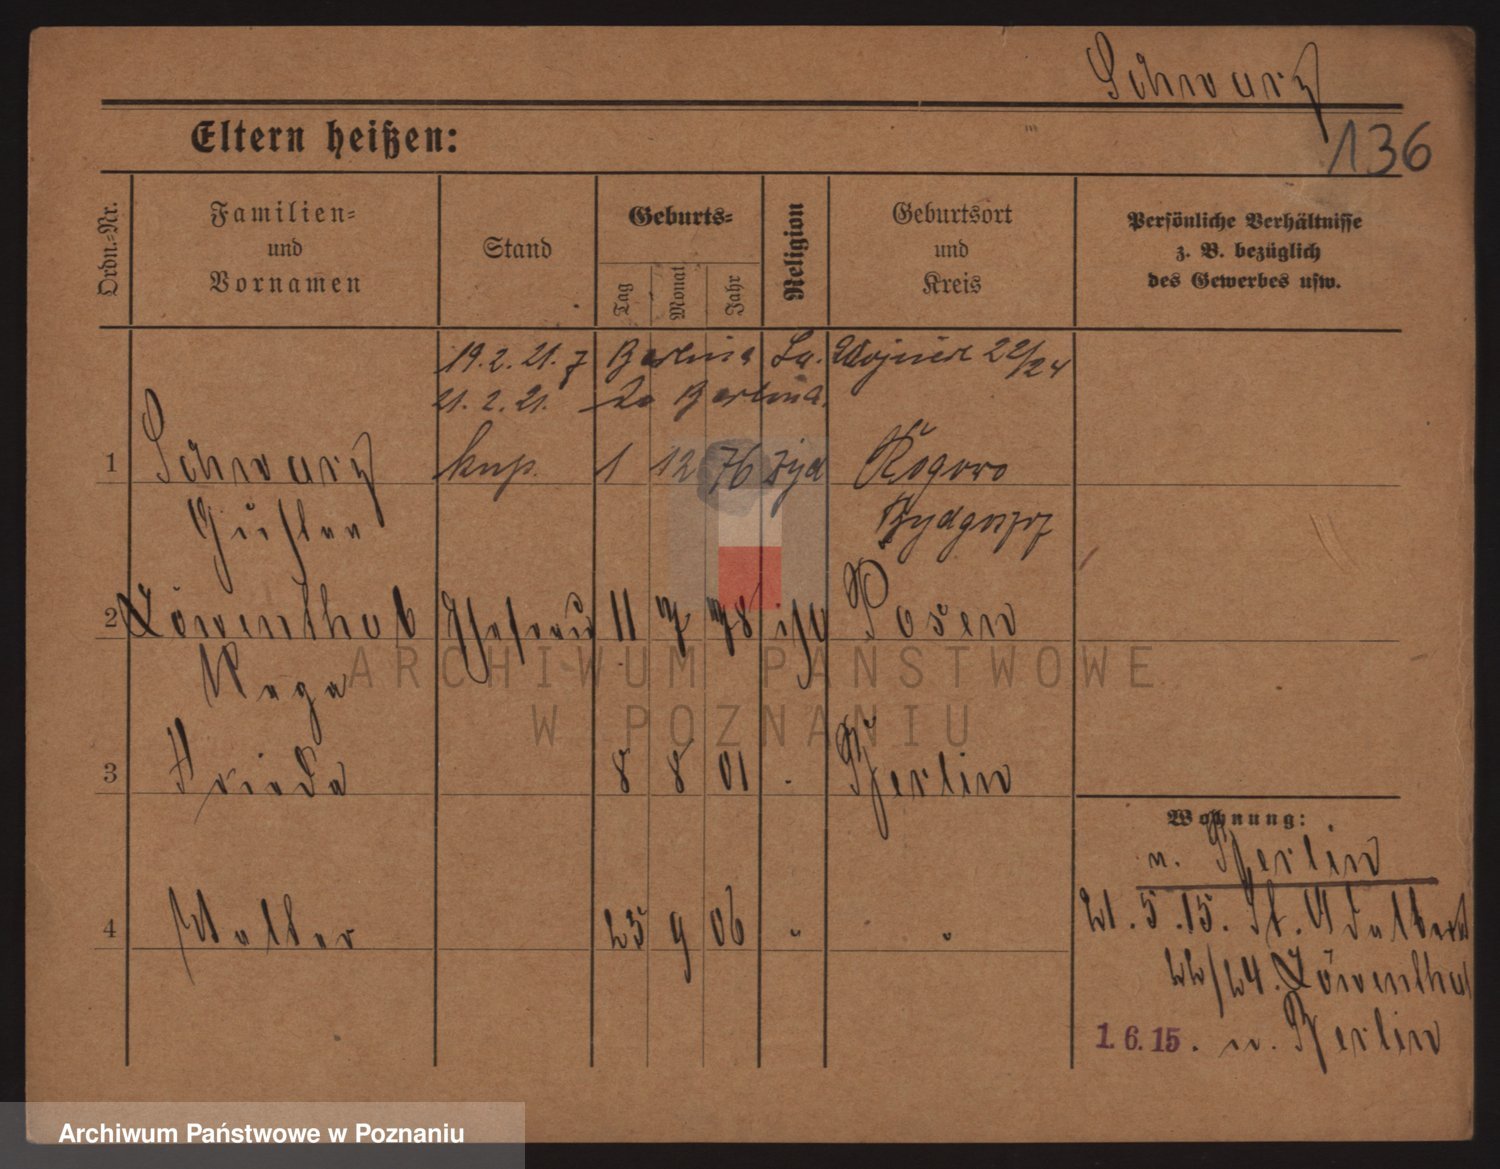 Schwarz
136
Eltern heißen:
Ordn.-Nr.
Familien-
und
Vornamen
Stand
Geburts-
Tag
Monat
Jahr
Religion
Geburtsort
und
Kreis
Persönliche Verhältnisse
z. B. bezüglich
des Gewerbes usw.
19. 2. 21. z Berlina Św. Wojciech 22/24
21. 2. 21. do Berlina.
1 Schwarz kup. 1 12 76 żyd Rogowo
Gustav Bydgoszcz
2 Löwenthal Ehefrau 11 7 78 isr Posen
3 Frieda 8 8 01 " Berlin
4 Walter 25 9 06 " "
Wohnung:
n. Berlin
21. 5. 15. St. Adalbert
22/24. Löwenthal
1. 6. 15. n. Berlin
ARCHIWUM PAŃSTWOWE
W POZNANIU
Archiwum Państwowe w Poznaniu